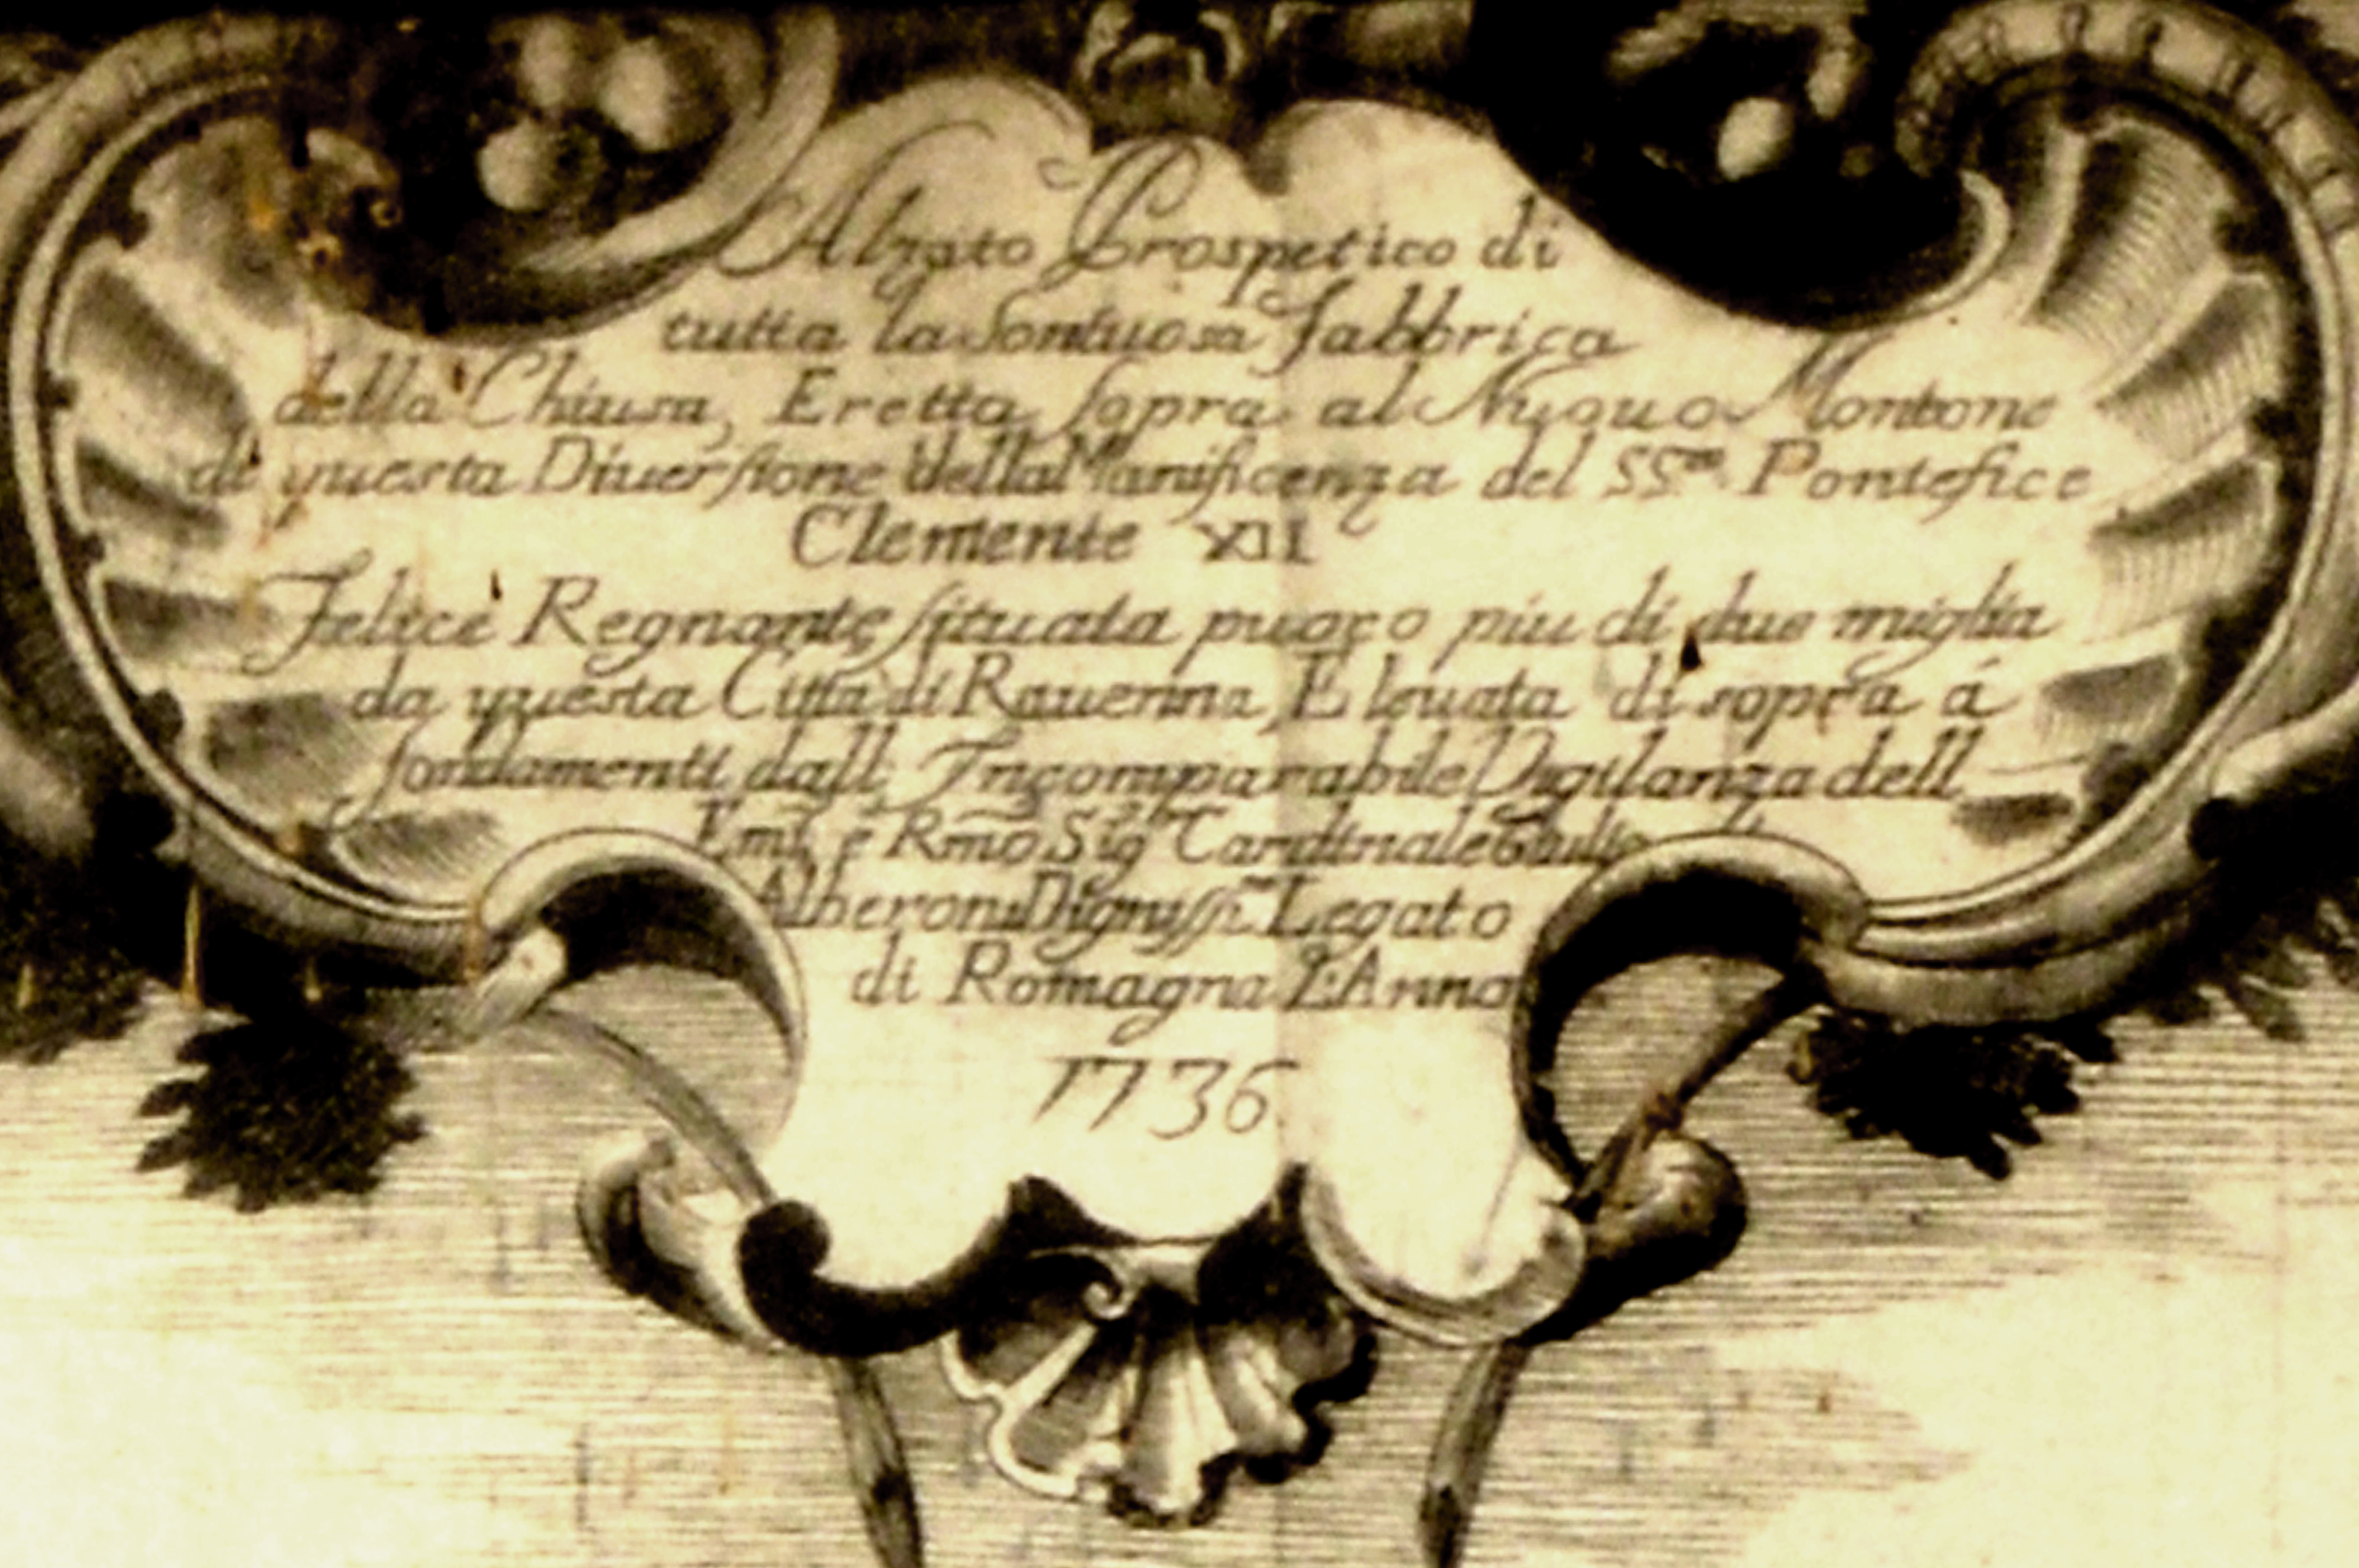 Alzato Prospetico di
tutta la Sontuosa fabbrica
della Chiusa, Eretta sopra al Nuouo Montone
di questa Diuersione della Manificenza del SS.mo Pontefice
Clemente XII
Felice Regnante situata puoco piu di due miglia
da questa Città di Rauenna, Eleuata di sopra á
fondamenti dall Incomparabile Vigilanza dell
Emo e Rmõ Sigr Cardinale Giulio
Alberoni Dignissi.mo Legato
di Romagna L'Anno
1736.